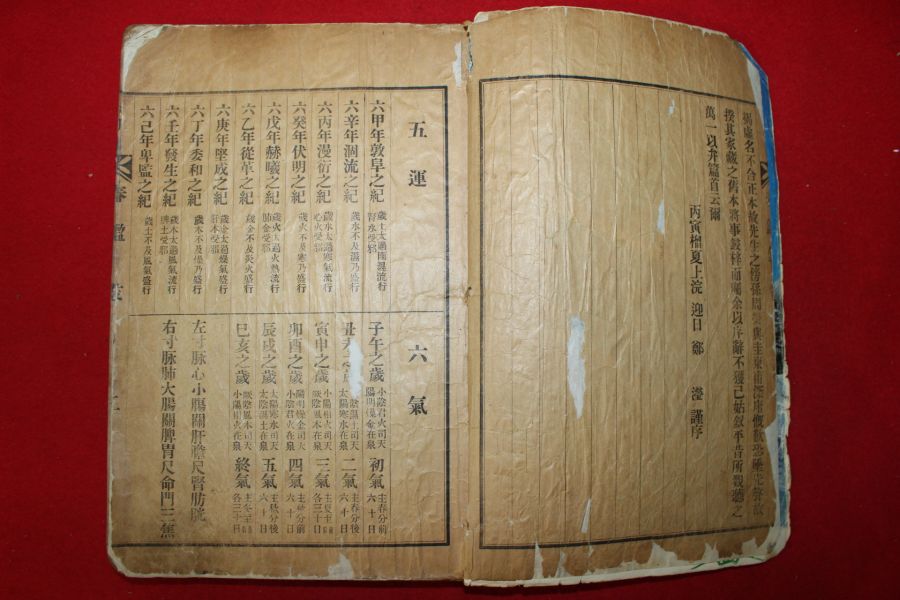 虛名不合正本故先生之傍孫周 與圭東甫深庸慨歎恐
其家藏之舊本將事鋟梓而囑余以序辭不獲已姑叙平昔所觀聽之
萬一以弁篇首云爾
丙寅榴夏上浣 迎日 鄭 瀅 謹序
五運
六甲年敦阜之紀 歲土太過雨濕流行 腎水受邪
六辛年涸流之紀 歲水不及濕乃盛行
六丙年漫衍之紀 歲水太過寒氣流行 心火受邪
六癸年伏明之紀 歲火不及寒乃盛行
六戊年赫曦之紀 歲火太過火熱流行 肺金受邪
六乙年從革之紀 歲金不及炎火盛行
六庚年堅成之紀 歲金太過燥氣流行 肝木受邪
六丁年委和之紀 歲木不及燥乃盛行
六壬年發生之紀 歲木太過風氣流行 脾土受邪
六己年卑監之紀 歲土不及風氣盛行
六氣
子午之歲 小陰君火司天 陽明燥金在泉 初氣 主春分前 六十日
丑未之歲 太陰濕土司天 太陽寒水在泉 二氣 主春分後 六十日
寅申之歲 小陽相火司天 厥陰風木在泉 三氣 主夏至前 各三十日
卯酉之歲 陽明燥金司天 小陰君火在泉 四氣 主秋分前 六十日
辰戌之歲 太陽寒水司天 太陰濕土在泉 五氣 主秋分後 六十日
巳亥之歲 厥陰風木司天 小陽相火在泉 終氣 主冬至 各三十日
左寸脉心小腸關肝膽尺腎肪胱
右寸脉肺大腸關脾胃尺命門三焦
春鑑